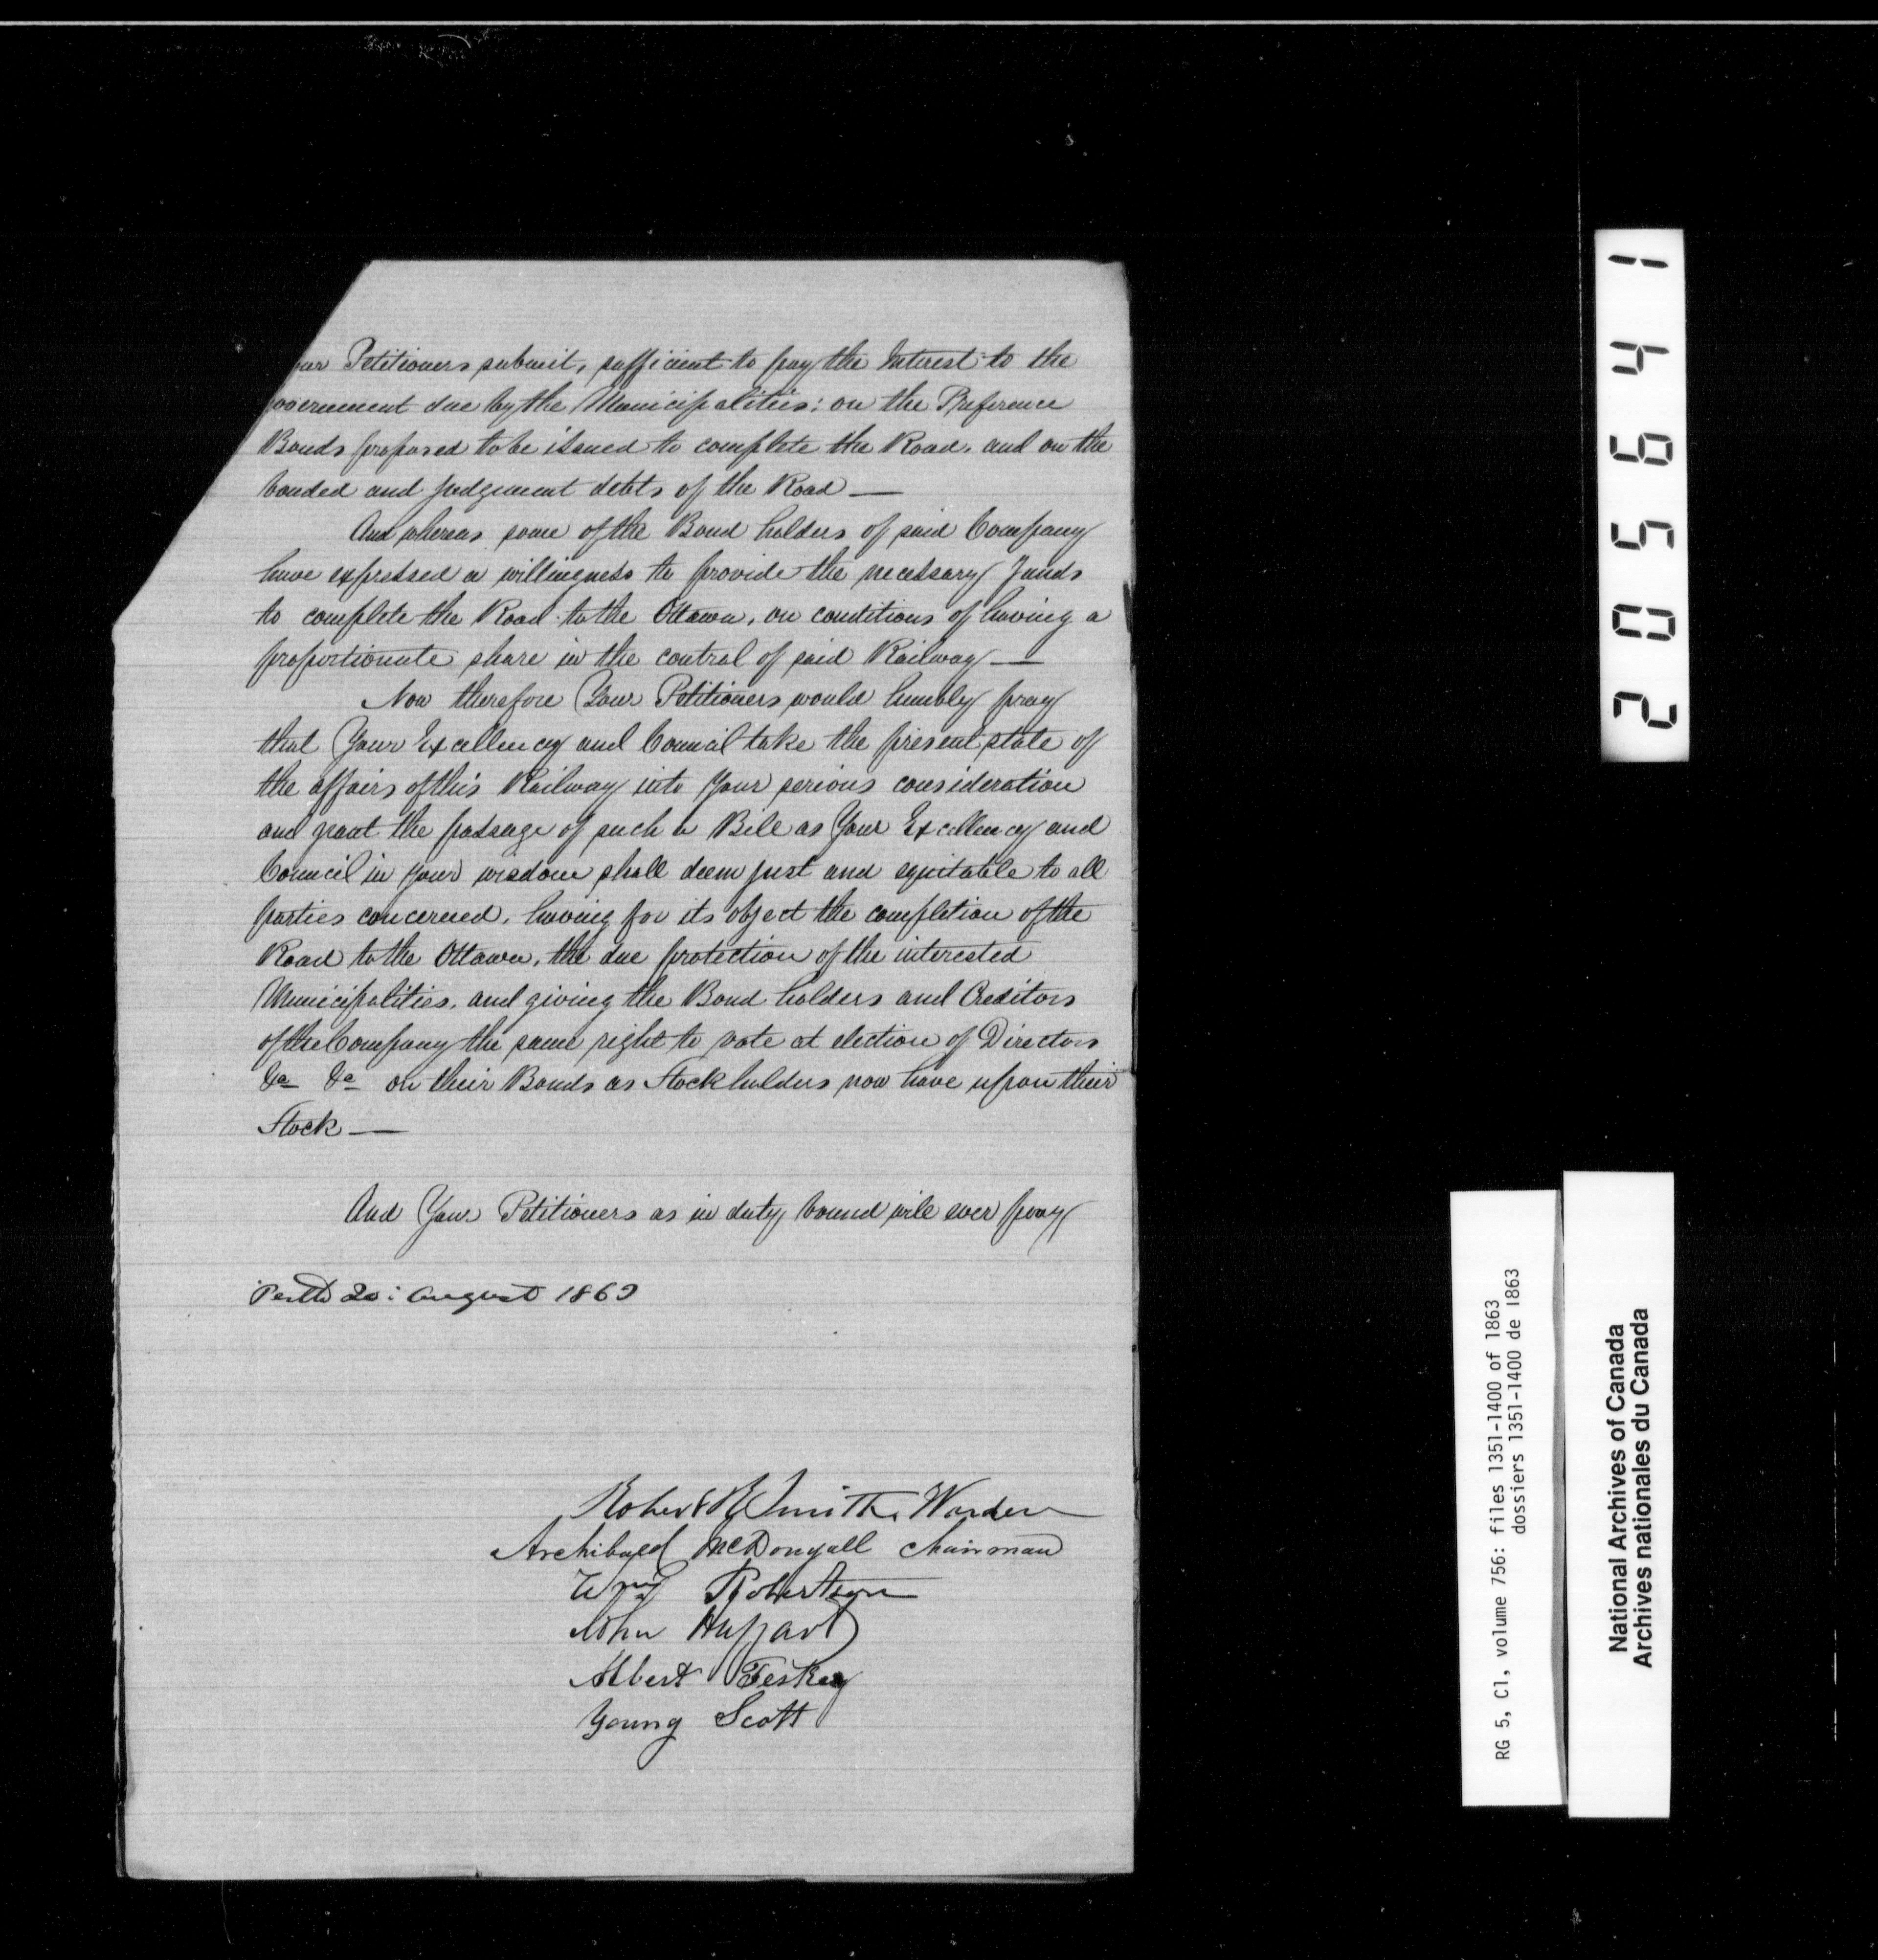 our Petitioners submit, sufficient to pay the Interest to the
overnment due by the Municipalities: on the Preference
Bonds proposed to be issued to complete the Road, and on the
bonded and judgement debts of the Road —
And whereas some of the Bond holders of said Company
have expressed a willingness to provide the necessary funds
to complete the Road to the Ottawa, on conditions of having a
proportionate share in the control of said Railway —
Now therefore Your Petitioners would humbly pray
that Your Excellency and Council take the present state of
the affairs of this Railway into Your serious consideration
and grant the passage of such a Bill as Your Excellency and
Council in Your wisdom shall deem just and equitable to all
parties concerned, having for its object the completion of the
Road to the Ottawa, the due protection of the interested
Municipalities, and giving the Bond holders and Creditors
of the Company the same right to vote at election of Directors
&c &c on their Bonds as Stockholders now have upon their
Stock —
And Your Petitioners as in duty bound will ever pray
Perth 20: August 1863
Robert Smith Warden
Archibald McDougall Chairman
Wm Robertson
John
Albert Teskey
Young Scott
205641
RG 5, C1, volume 756: files 1351-1400 of 1863
dossiers 1351-1400 de 1863
National Archives of Canada
Archives nationales du Canada